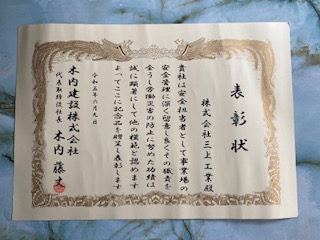 表彰状
株式会社三上工業殿
貴社は安全担当者として事業場の
安全管理に深く留意し良くその職責を
全うし労働災害の防止に努めた功績は
誠に顕著にして他の模範と認めます
よってここに記念品を贈呈し表彰します
令和五年六月九日
木内建設株式会社
代表取締役社長 木内藤丈